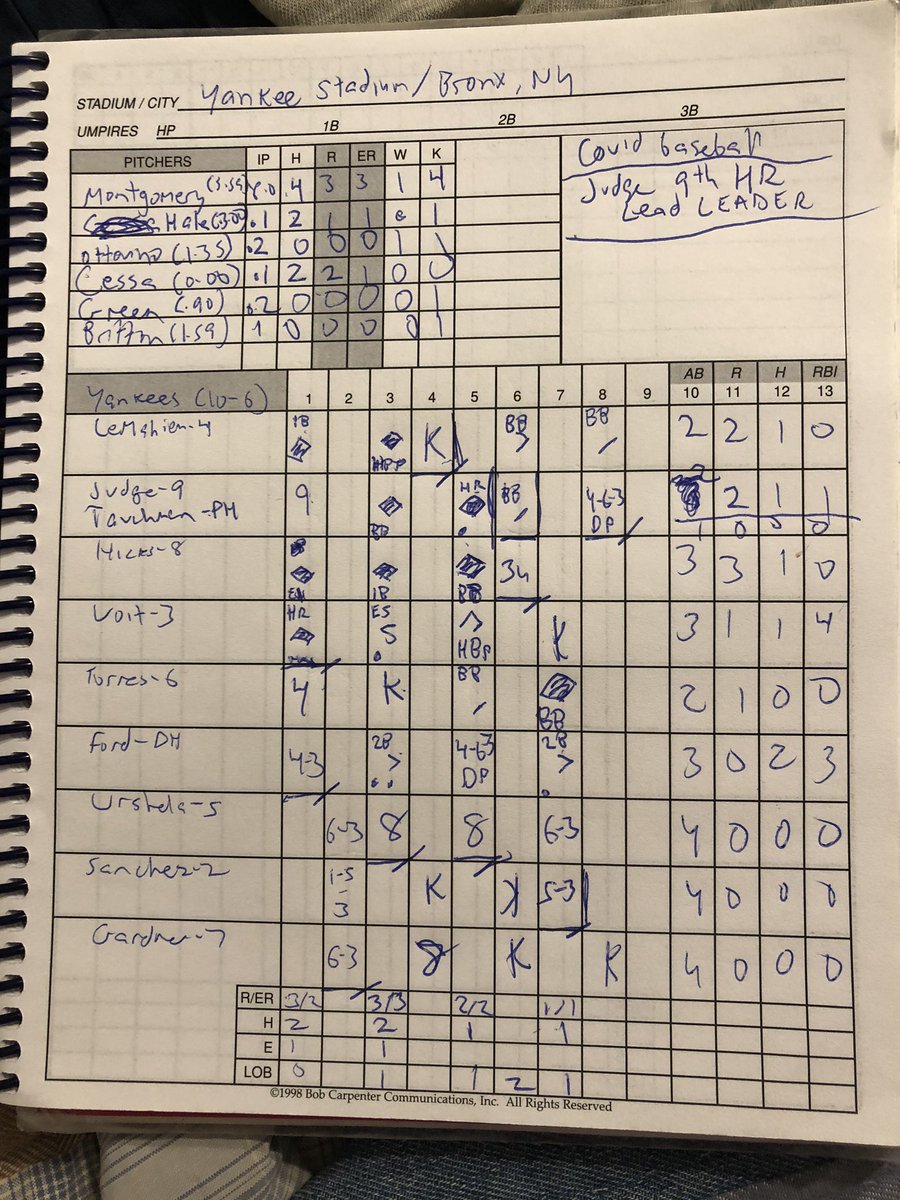 STADIUM / CITY Yankee Stadium / Bronx, NY
UMPIRES HP 1B 2B 3B
PITCHERS IP H R ER W K
Montgomery 4 3 3 1 4
Hale .1 2 1 1 0 1
.2 0 0 0 1 1
Cessa (0.00) .1 2 2 1 0 0
Green (.90) .2 0 0 0 0 1
1 0 0 0 0 1
Covid baseball
Judge 9th HR
Lead LEADER
Yankees (10-6) 1 2 3 4 5 6 7 8 9 AB 10 R 11 H 12 RBI 13
1B HBP K BB BB 2 2 1 0
Judge-9 9 BB HR BB 4-6-3 DP 2 2 1 1
-PH 1 0 0 0
Hicks-8 1B BB 34 3 3 1 0
Voit-3 HR S HBP K 3 1 1 4
Torres-6 4 K BB BB 2 1 0 0
Ford-DH 4-3 2B 4-6-3 DP 2B 3 0 2 3
Urshela-5 6-3 8 8 6-3 4 0 0 0
Sanchez-2 1-5-3 K K 5-3 4 0 0 0
Gardner-7 6-3 8 K K 4 0 0 0
R/ER 3/2 3/3 2/2 1/1
H 2 2 1 1
E 1 1
LOB 0 1 1 2 1
©1998 Bob Carpenter Communications, Inc. All Rights Reserved